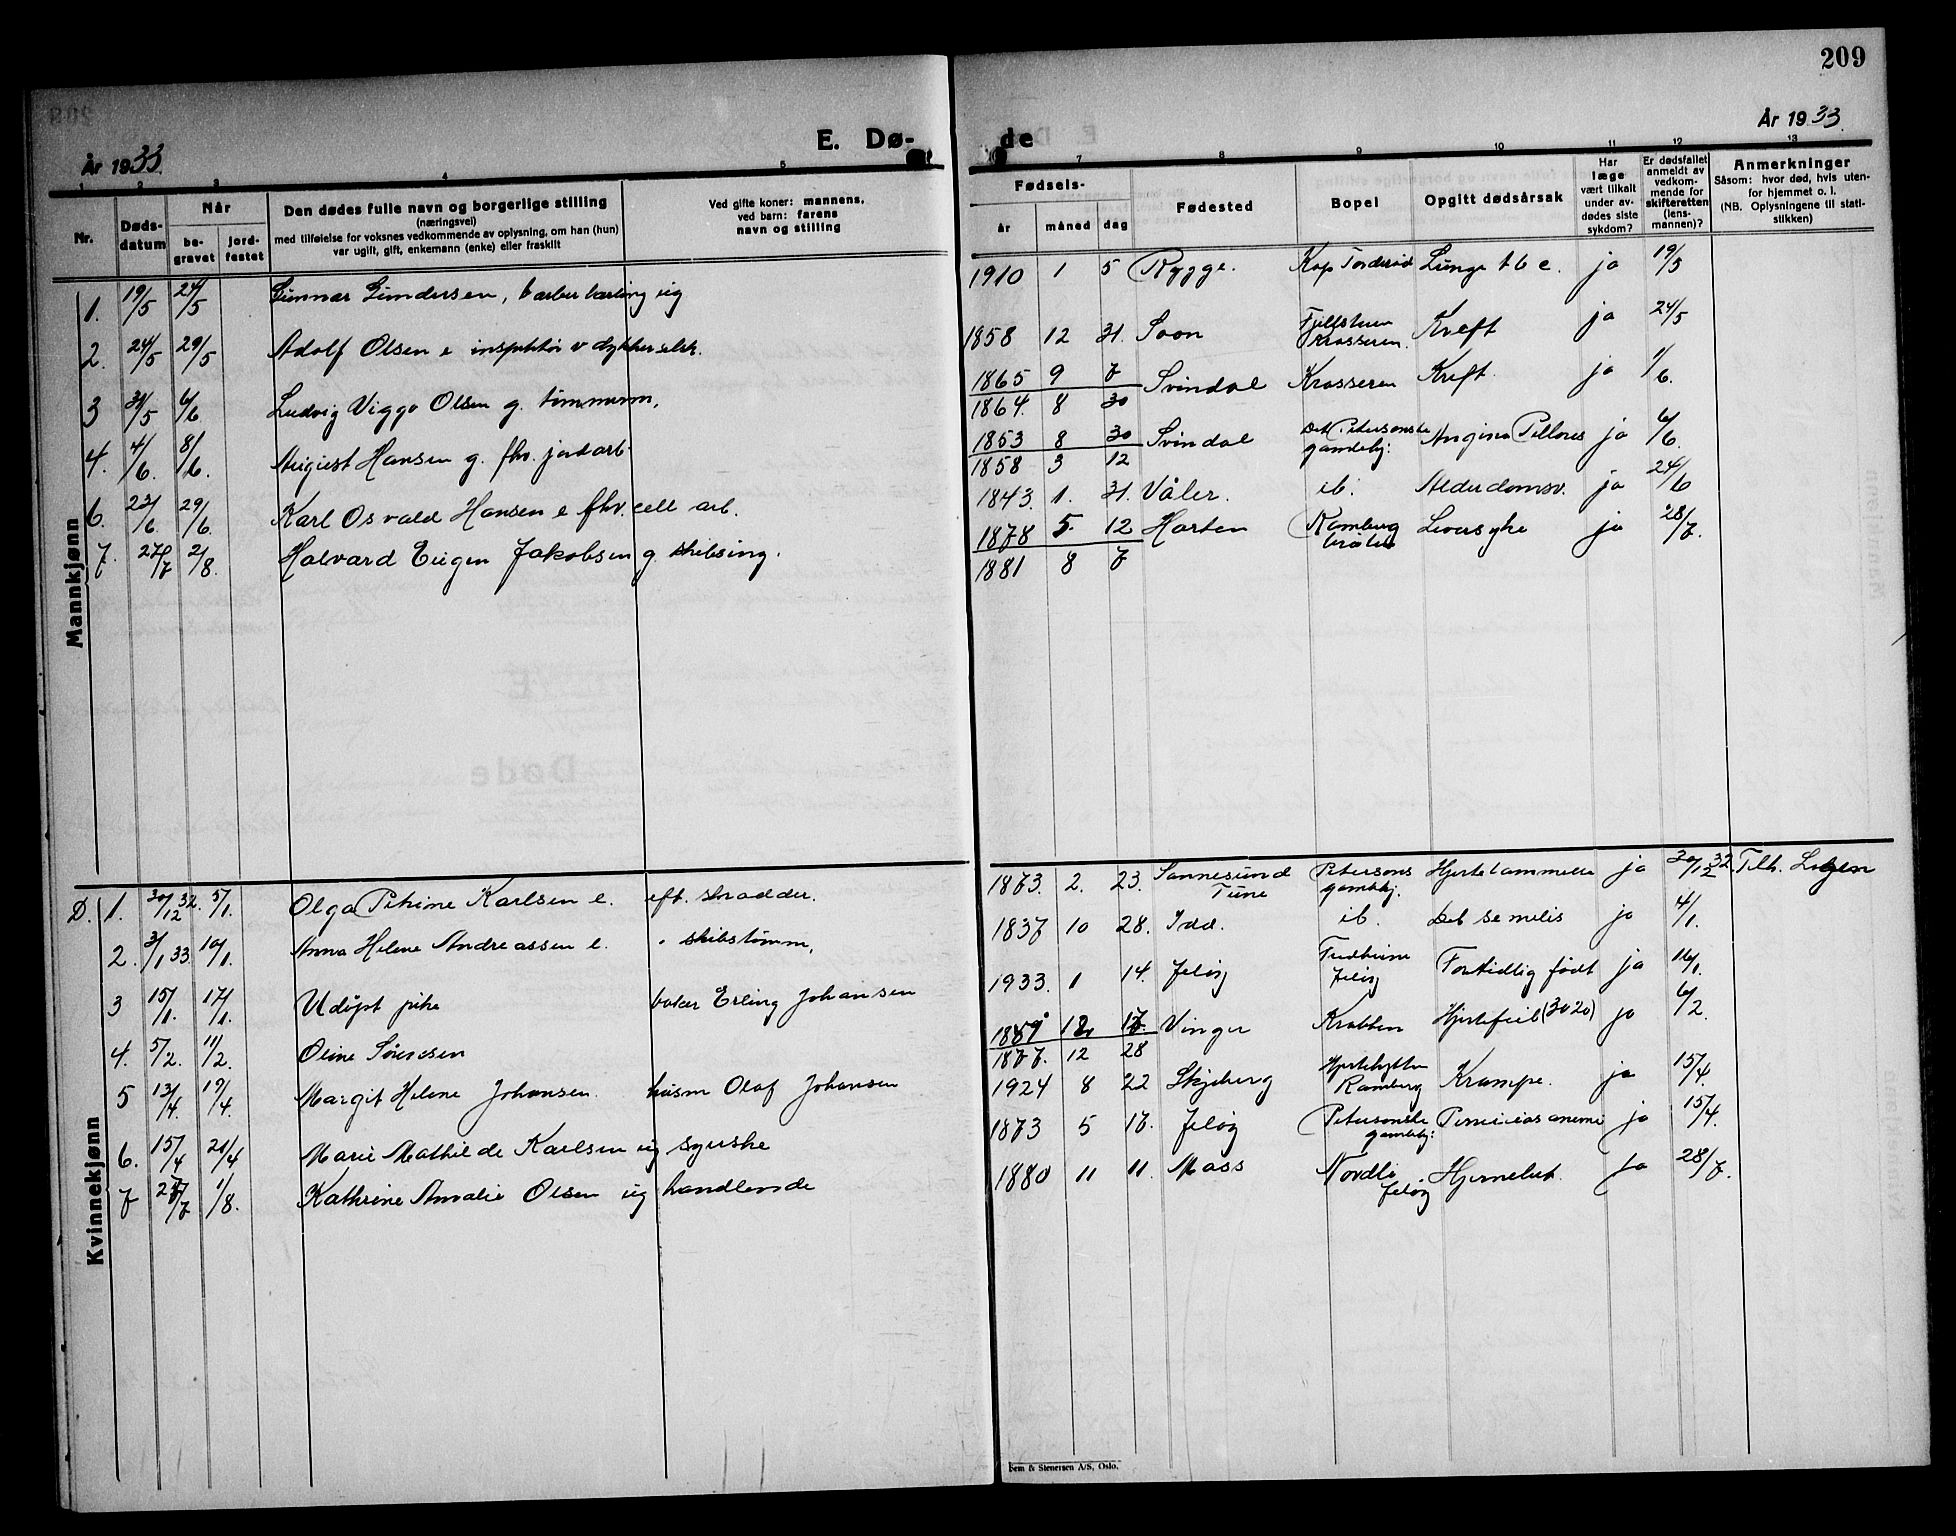 209
År 1933.
E. Dø-
de
År 1933.
1 2 3 4 5
7 8 9 10 11 12 13
Nr.
Døds-
datum
Når
be-
gravet
jord-
festet
Den dødes fulle navn og borgerlige stilling
(næringsvei)
med tilføielse for voksnes vedkommende av oplysning, om han (hun)
var ugift, gift, enkemann (enke) eller fraskilt
Ved gifte koner: mannens,
ved barn: farens
navn og stilling
Fødsels-
år måned dag
Fødested
Bopel
Opgitt dødsårsak
Har
læge
vært tilkalt
under av-
dødes siste
sykdom?
Er dødsfallet
anmeldt av
vedkom-
mende for
skifteretten
(lens-
mannen)?
Anmerkninger
Såsom: hvor død, hvis uten-
for hjemmet o. l.
(NB. Oplysningene til stati-
stikken)
Mannkjønn
1. 19/5 24/5 Gunnar Gundersen, barberlærling ug
1910 1 5 Rygge. Lunge tbc. ja 19/5
2. 24/5 29/5 Adolf Olsen e inspektör v dykkerselsk.
1858 12 31. Soon Fjellstuen Krosseren. Kreft ja 24/5
3 31/5 6/6 Ludvig Viggo Olsen g. tömmerm.
1865 9 7 Svindal Krosseren Kreft. ja 1/6.
1864. 8 30
4. 4/6. 8/6. August Hansen g. fhv. jordarb.
1853 8 30 Svindal Det Petersonske gamlehj: Angina Pectoris ja 6/6.
1858 3 12
6. 23/6. 29/6. Karl Osvald Hansen e fhv. cell arb.
1843. 1. 31. Våler. ib. Alderdomsv. ja 24/6
7. 27/7 2/8. Halvard Eugen Jakobsen g. skibsing.
1878 5. 12 Horten Ramberg bråten Leversyke ja 28/7.
1881 8 7
Kvinnekjønn
D. 1. 30/12 32. 5/1. Olga Petrine Karlsen e. eft. skrædder.
1873. 2. 23. Sannesund Tune Petersons gamlehj. Hjertelammelse ja 30/12 32. Tilh. Logen
2. 3/1 33. 10/1. Anna Helene Andreassen e. " skibstömm,
1837 10 28. Idd. ib. Det semelis ja 4/1.
3 15/1. 17/1. Udöpt pike baker Erling Johansen
1933. 1 14. Jelöy Fredheim Jelöy Fortidlig födt ja 16/1.
4. 5/2. 11/2. Oline Sörensen
1859 12 17. Vinger Krabben Hjertefeil (3020) ja 6/2.
1877. 12 28
5 13/4. 19/4. Margit Helene Johansen. husm Olaf Johansen
1924 8 22 Skjeberg Hjertehytten Ramberg Krampe. ja 15/4.
6. 15/4 21/4 Marie Mathilde Karlsen ug syerske
1873 5 17. Jelöy Petersonske gamlehj: Perniciøs anemi ja 15/4.
7 27/7 1/8. Kathrine Amalie Olsen ug handlende
1880 11 11. Moss Nordli Jelöy Hjerneblöt. ja 28/7.
Sem & Stenersen A/S, Oslo.